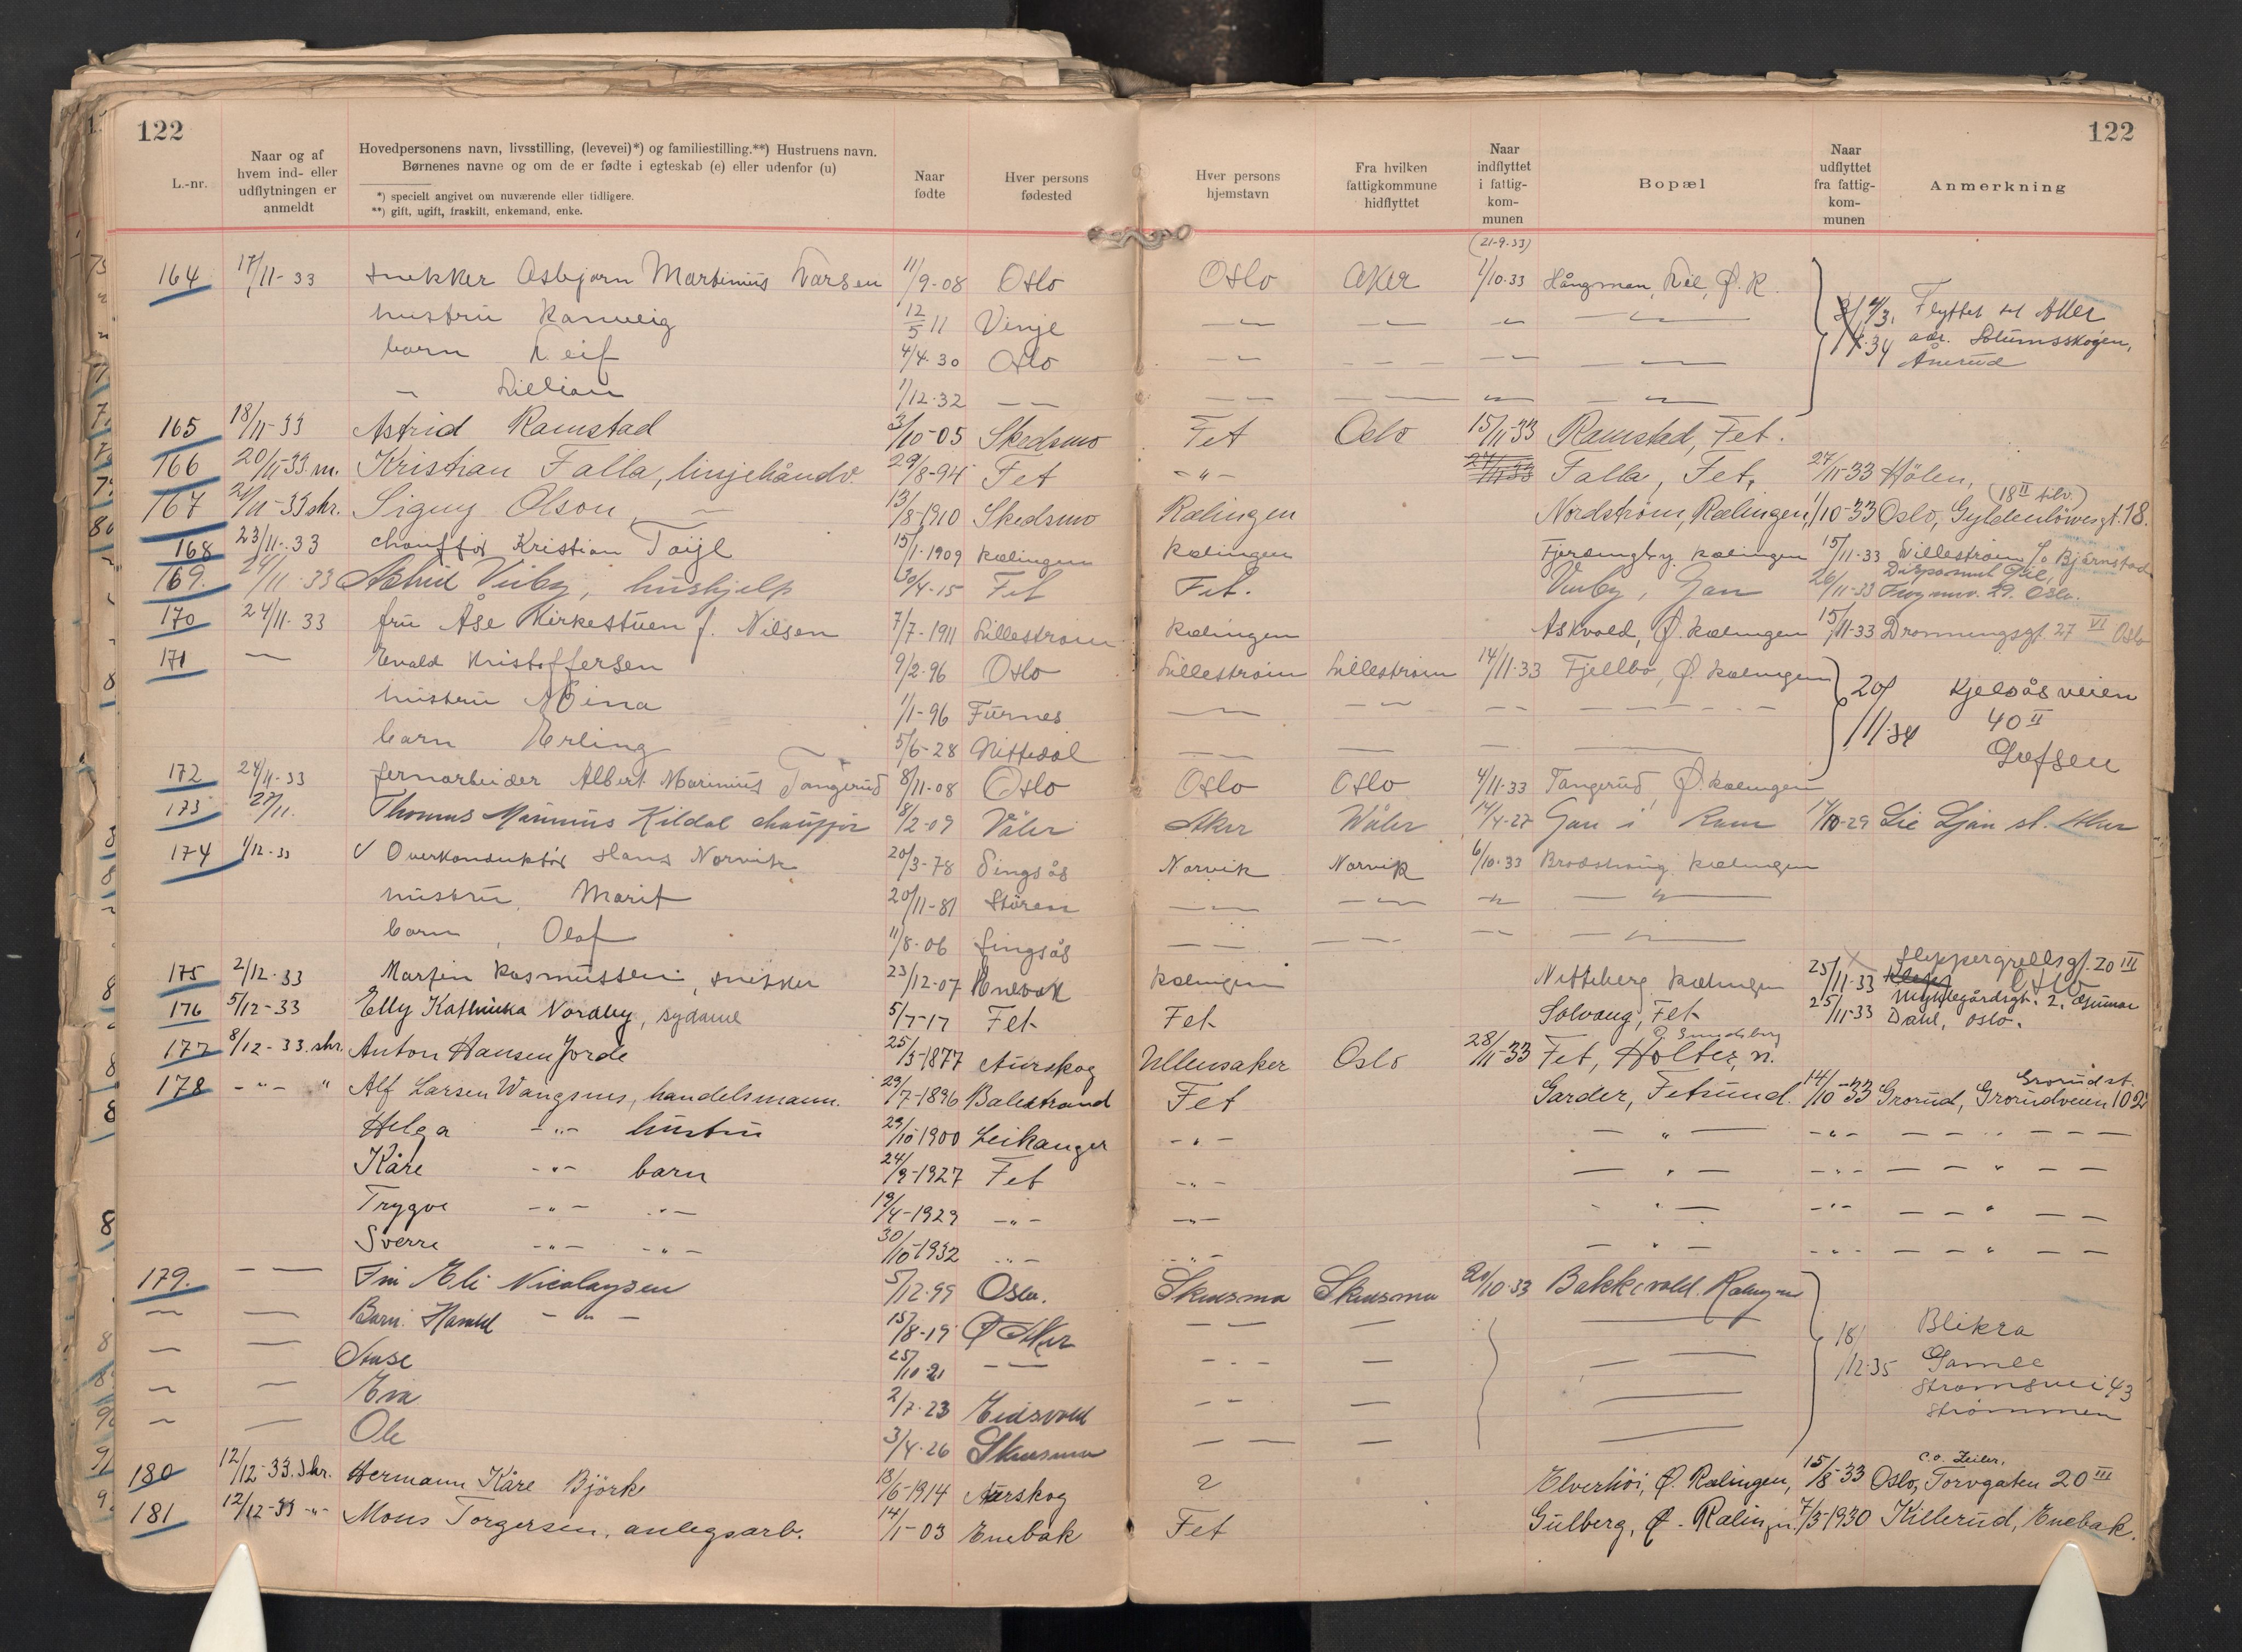 122
122
L.-nr.
Naar og af hvem ind- eller udflytningen er anmeldt
Hovedpersonens navn, livsstilling, (levevei)*) og familiestilling.**) Hustruens navn.
Børnenes navne og om de er fødte i egteskab (e) eller udenfor (u)
*) specielt angivet om nuværende eller tidligere.
**) gift, ugift, fraskilt, enkemand, enke.
Naar fødte
Hver persons fødested
Hver persons hjemstavn
Fra hvilken fattigkommune hidflyttet
Naar indflyttet i fattig-kom-munen
Bopæl
Naar udflyttet fra fattig-kom-munen
Anmerkning
(21-9-33)
164 17/11-33 snekker Asbjørn Martinius Larsen 11/9-08 Oslo Oslo Aker 1/10-33 Hångman, Lil, Ø. R. Flyttet til Aker
hustru Ranveig 12/5 11 Vinje
adr. Solumsskogen,
barn Leif 4/4-30 Oslo Ånerud
Lillian 1/12-32
165 18/11-33 Astrid Ramstad 3/10-05 Skedsmo Fet Oslo 15/11-33 Ramstad, Fet.
166 20/11-33 m. Kristian Falla, linjehåndv. 29/8-94 Fet - " - Falla, Fet, 27/11-33 Hölen,
(18 II tilv.)
167 21/11-33 skr. Signy Olson 13/8-1910 Skedsmo Rælingen Nordstrøm, Rælingen, 1/10-33 Oslo, Gyldenløwesgt. 18.
168 23/11-33 chauffør Kristian Toijl 15/1-1909 Rælingen Rælingen Fjerdingby Rælingen 15/11-33 Lillestrøm c/o Bjørnstad
169. 24/11-33 Astrid Viuby, hushjelp 30/4-15 Fet Fet. Viuby, Gan 26/11-33 Frognerv. 29. Oslo.
170 24/11-33 fru Åse Kirkestuen f. Nilsen 7/7-1911 Lillestrøm Rælingen Askvold, Ø. Rælingen 15/11-33 Dronningsgt 27 VI Oslo
171 Evald Kristoffersen 9/2-96 Oslo Lillestrøm Lillestrøm 14/11-33 Fjellbo, Ø. Rælingen
hustru Mina 1/1-96 Furnes 20/11-34 Kjelsåsveien
40 II
barn Erling 5/6-28 Nittedal
Grefsen
172 24/11-33 jernarbeider Albert Marinius Tangerud 8/11-08 Oslo Oslo Oslo 4/11-33 Tangerud, Ø. Rælingen
173 27/11. Thomas Marinius Kildal chauffør 8/2-09 Våler Aker Våler 14/4-27 Gan i Ram 14/10-29 Lie Ljan st. Aker
174 1/12-33 ✓ Overkonduktør Hans Norvik 20/3-78 Singsås Narvik Narvik 6/10-33 Rælingen
hustru, Marit 20/11-81 Støren
barn, Olaf 11/8-06 Singsås
175 2/12-33 Martin Rasmussen, snekker 23/12-07 Enebak Rælingen Nitteberg Rælingen 25/11-33 Steppergrellsgt. 20 III
Oslo
176 5/12-33 Elly Kathinka Nordby, sydame 5/7-17 Fet Fet Solvang, Fet 25/11-33 Munkegårdsgt. 2. Gunnar
Dahl, Oslo.
177 8/12-33. skr. Anton Hansen Jorde 25/5-1877 Aurskog Ullensaker Oslo 28/11-33 Fet, Holter, n.
178 - " - " Alf Larsen Wangsnes, handelsmann. 29/7-1896 Balestrand Fet Garder, Fetsund. 14/10-33 Grorud, Grorudveien 102
Grorud st.
Helga - " - hustru 29/10-1900 Leikanger - " -
Kåre - " - barn 24/9-1927 Fet - " -
Trygve - " - - " - 19/4-1929 - " - - " -
Sverre - " - - " - 30/10-1932 - " - - " -
179. Fru Eli Nicolaysen 5/12-99 Oslo. Skedsmo Skedsmo 20/10-33 Bakkevold. Rælingen
Barn. Harald - " - 15/8-19 Ø Aker
Aase 25/10-21 18/12-35 Blikra
Gamle
Eva 2/7-23 Eidsvold Strømsvei 43
Strømmen
Ole 3/4-26 Skedsmo
180 12/12-33. skr. Hermann Kåre Björke 18/6-1914 Aurskog ? Elverhöi, Ø. Rælingen, 15/8-33 Oslo, Torvgaten 20 III
c.o. Zeiler,
181 12/12-33 - " - Mons Torgersen, anlegsarb. 14/1-03 Enebak Fet Gulberg, Ø. Rælingn. 7/3-1930 Killerud, Enebak.